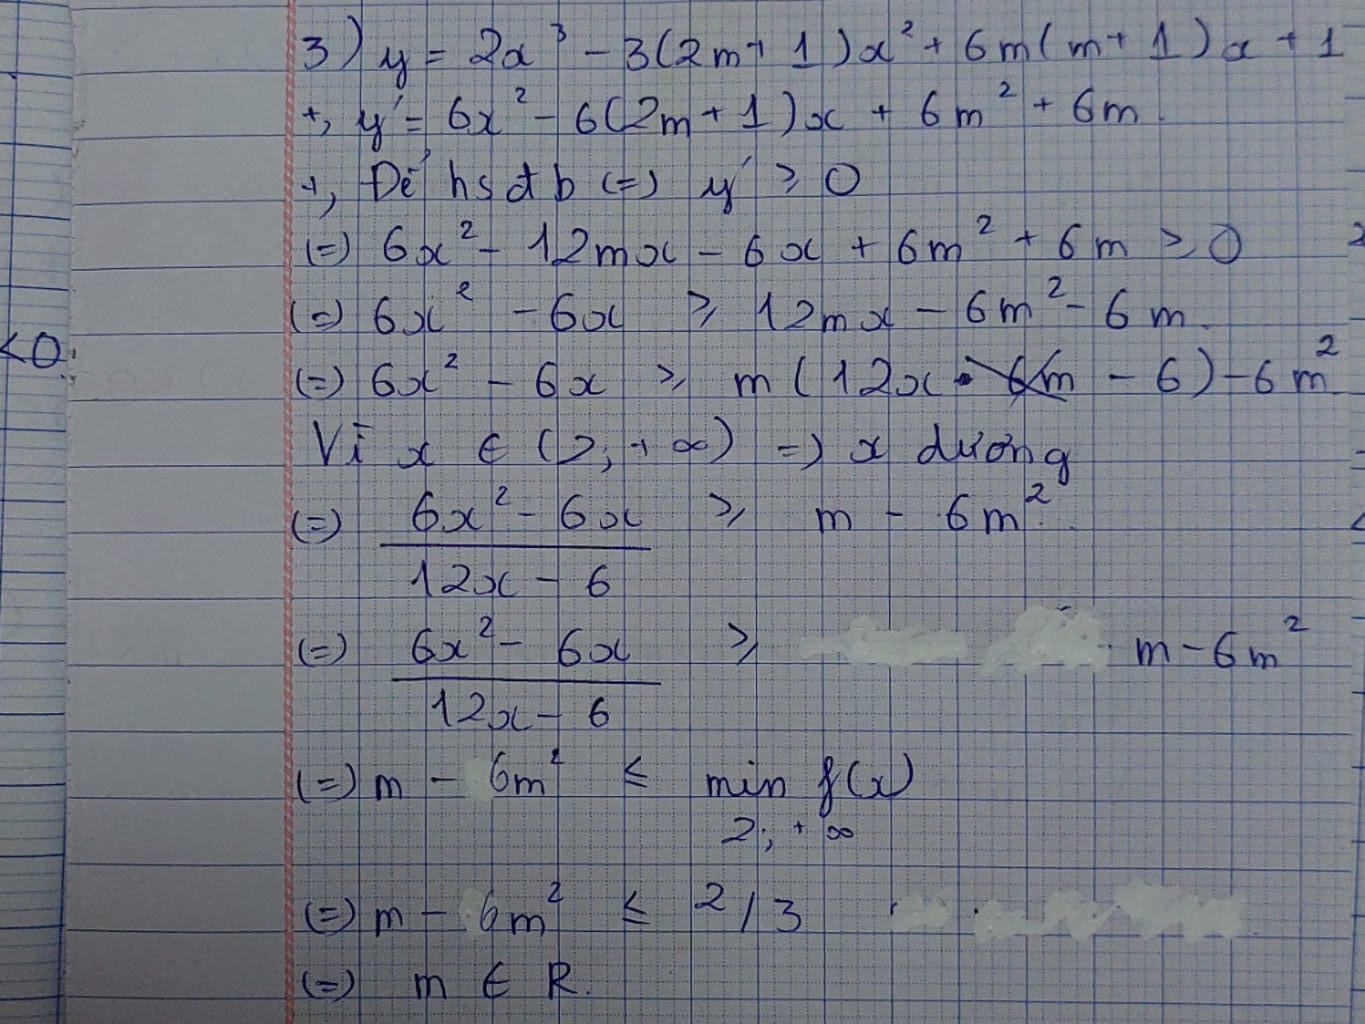 3) y = 2x³ - 3(2m + 1)x² + 6m(m + 1)x + 1
+, y' = 6x² - 6(2m + 1)x + 6m² + 6m.
+, Để hsđb (=) y' ⩾ 0
(=) 6x² - 12mx - 6x + 6m² + 6m ⩾ 0
(=) 6x² - 6x ⩾ 12mx - 6m² - 6m.
<0
(=) 6x² - 6x ⩾ m(12x - 6m - 6) - 6m²
Vì x ∈ (2; + ∞) =) x dương
(=) 6x² - 6x / 12x - 6 ⩾ m - 6m².
(=) 6x² - 6x / 12x - 6 ⩾ m - 6m²
(=) m - 6m² ⩽ min f(x)
2; + ∞
(=) m - 6m² ⩽ 2/3
(=) m ∈ R.